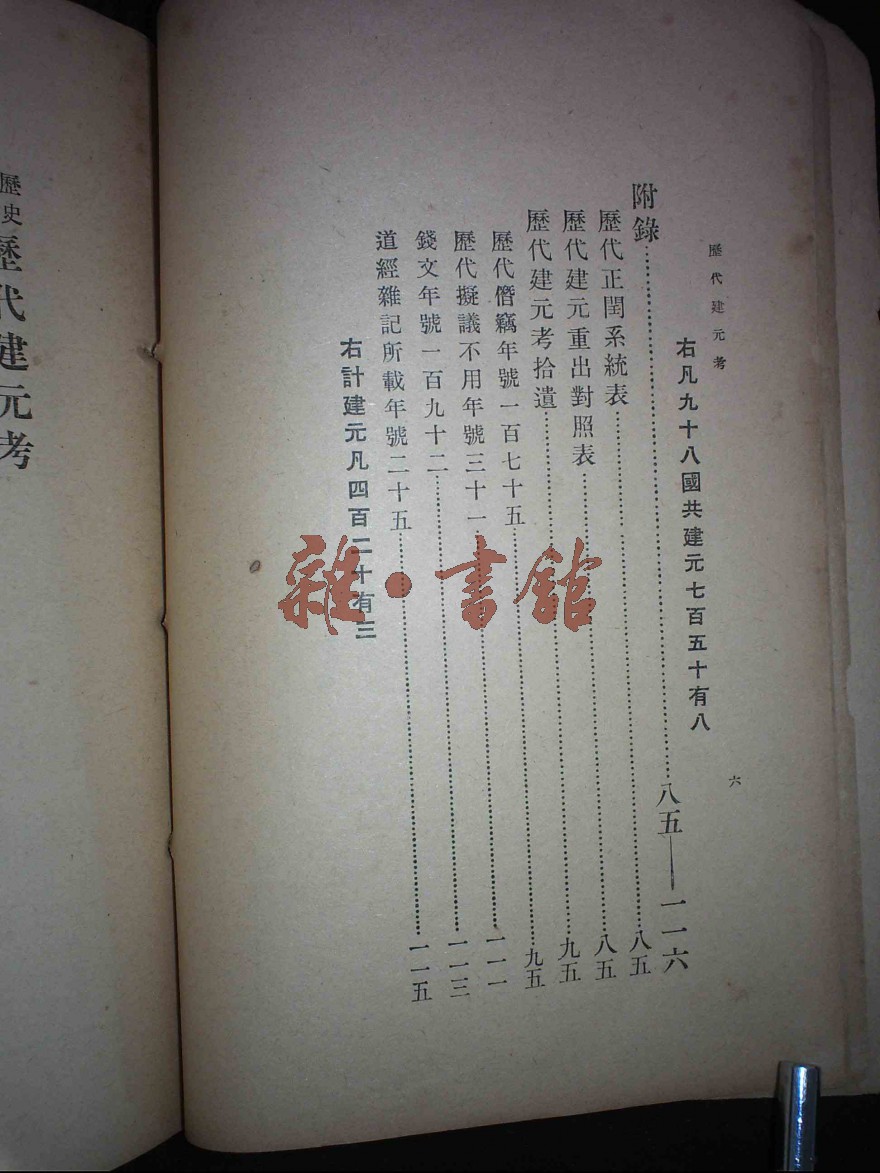 歷代建元考 六
右凡九十八國共建元七百五十有八
附錄……八五——一一六
歷代正閏系統表……八五
歷代建元重出對照表……八五
歷代建元考拾遺……九五
歷代僭竊年號一百七十五……九五
歷代擬議不用年號三十一……一一一
錢文年號一百九十二……一一三
道經雜記所載年號二十五……一一五
右計建元凡四百二十有三
雜·書館
歷史 歷代建元考